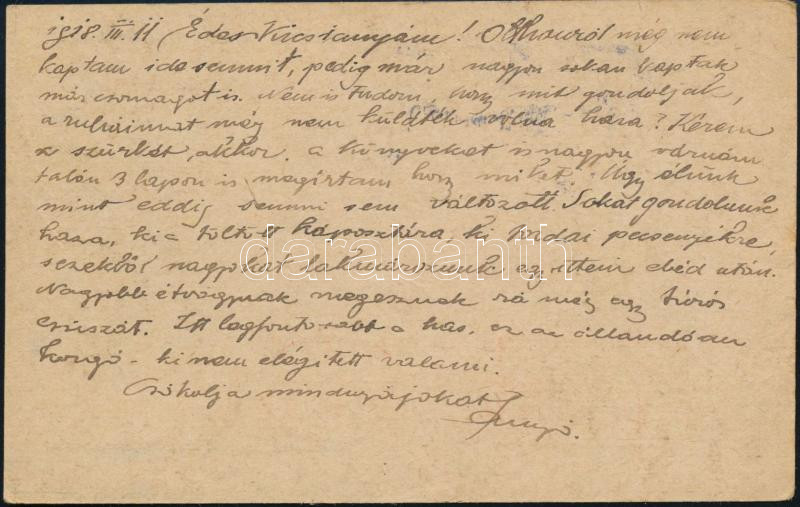 1918. III. 11 Édes Kicsianyám! Otthonról még nem
kaptam ide semmit, pedig már nagyon sokan kaptak
már csomagot is. Nem is tudom, hogy mit gondoljak,
a ruháimat még nem küldték volna haza? Kérem
a szürkét, akkor a könyveket is nagyon várnám
talán 3 lapon is megírtam hogy miket. Úgy élünk
mint eddig semmi sem változott. Sokat gondolunk
haza, ki a töltött káposztára, ki budai pecsenyékre,
s ezekből nagyokat lakmározunk egy itteni ebéd után.
Nagyobb étvágyuak megesznek rá még egy túrós
csuszát. Itt legfontosabb a has, ez az állandóan
korgó - ki nem elégitett valami.
Csókolja mindnyájokat
darabanth